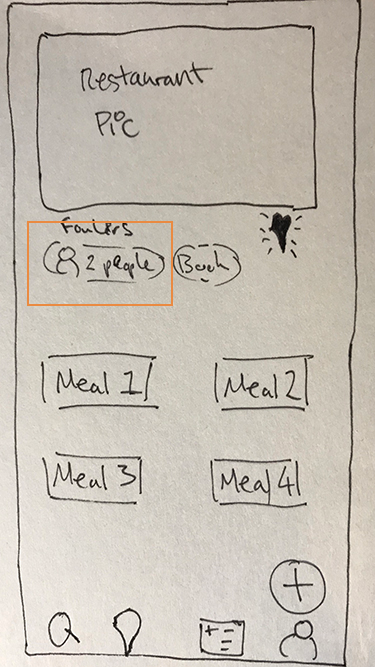 Restaurant
Pic
Fowlers
2 people Book
Meal 1 Meal 2
Meal 3 Meal 4